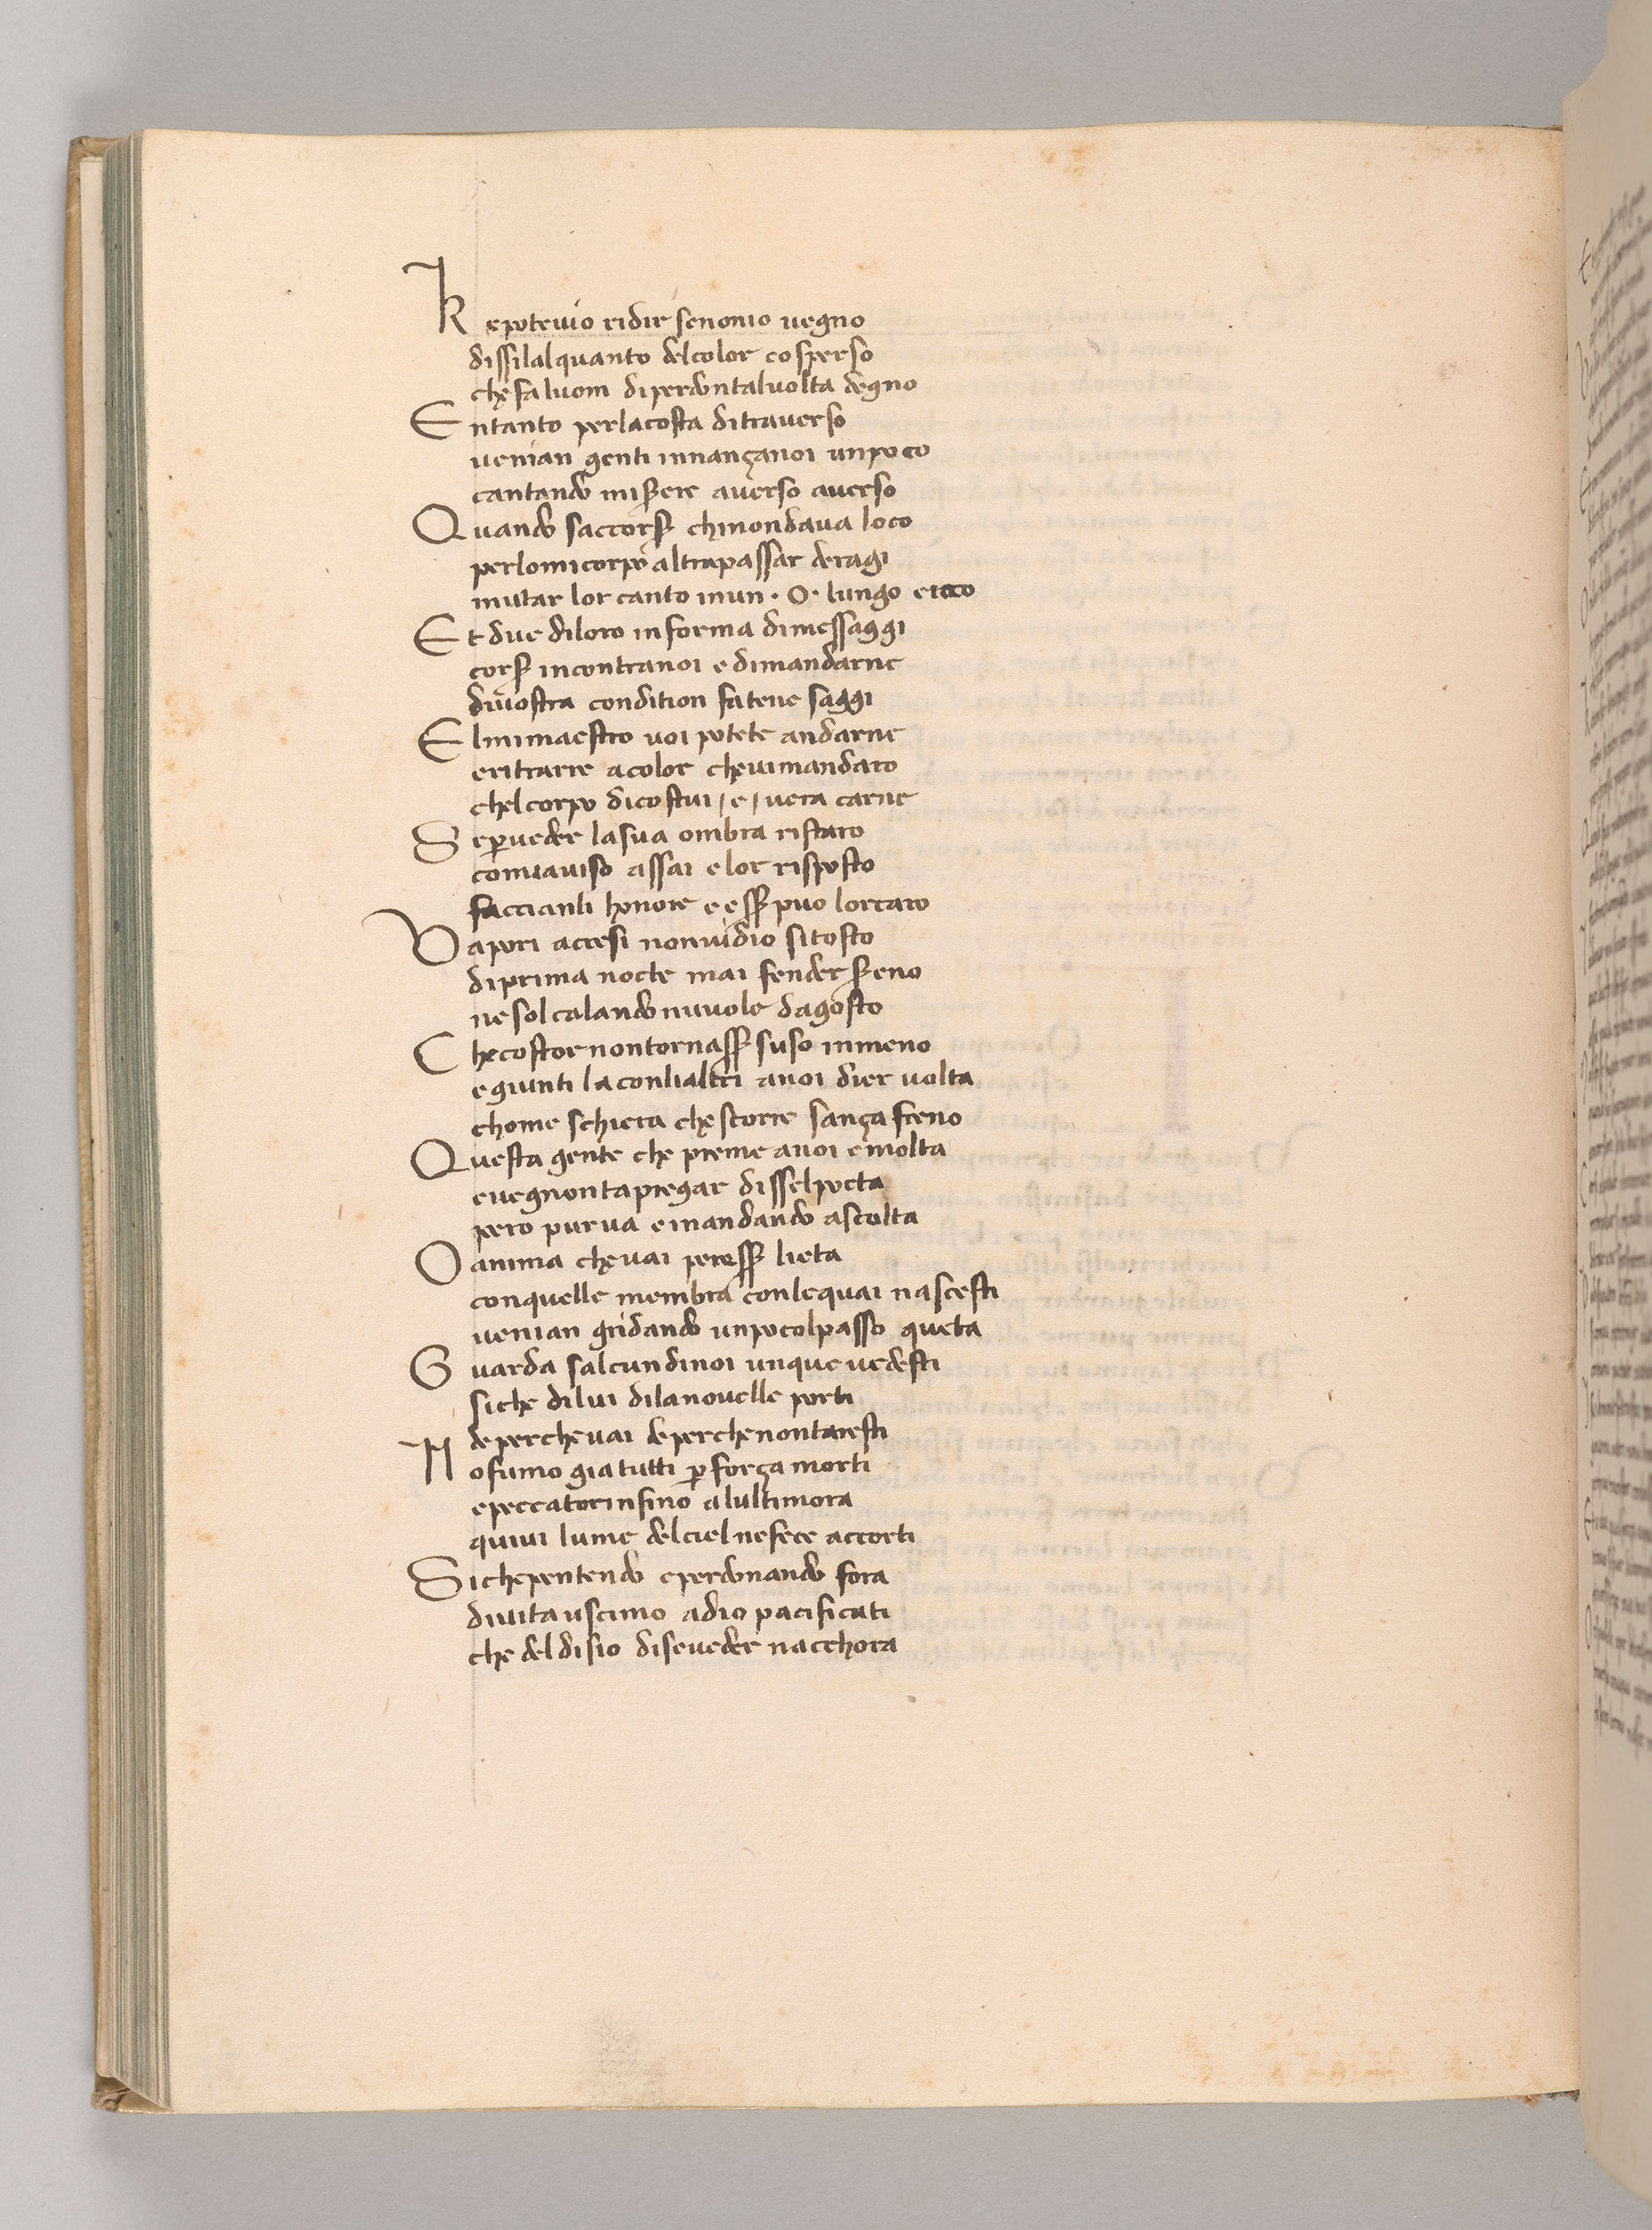 K epoteuio ridir senonio uegno
dissilalquanto delcolor cosperso
che faluom diperdontaluolta degno
E ntanto perlacosta ditrauerso
uenian genti innançanoi unpoco
cantando miserere auerso auerso
Q uando saccorser chinondaua loco
perlomicorpo altrapassar deragi
mutar lor canto inun · O · lungo eroco
E t due diloro in forma dimessaggi
corser incontranoi e dimandarne
diuostra condition fatene saggi
E lmimaestro uoi potete andarne
eritrarre acolor cheuimandaro
chelcorpo dicostui / e / uera carne
S eperueder lasua ombra ristaro
comiauiso assai e lor risposto
faccianli honore e esser puo lorcaro
V apori accesi nonuidio sitosto
diprima nocte mai fender sereno
ne sol calando nuuole dagosto
C hecostor nontornasser suso inmeno
egiunti la conlialtri anoi dier uolta
chome schiera che scorre sança freno
Q uesta gente che preme anoi e molta
euegnontapregar dissel poeta
pero pur ua e inandando ascolta
O anima che uai peresser lieta
conquelle membra conlequai nascesti
uenian gridando unpocolpasso queta
G uarda salcundinoi unque uedesti
siche dilui dilanouelle porti
deperche uai deperchenontaresti
N oi fumo gia tutti per força morti
epeccatorinfino alultimora
quiui lume delciel nefece accorti
S ichepentendo eperdonando fora
diuita uscimo adio pacificati
che del disio diseueder nacchora